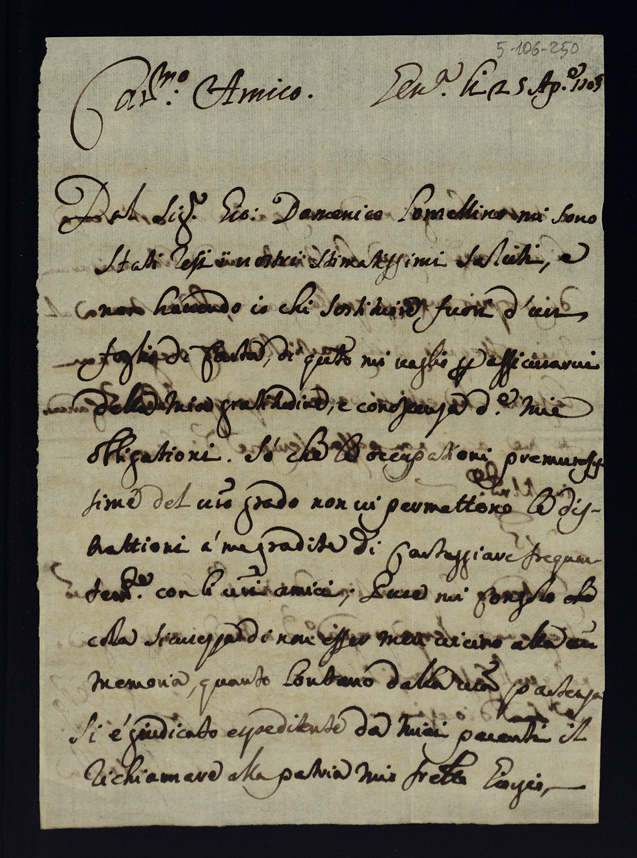 5-106-250
Car.mo Amico.
Gen.a li 25 Ap.e
Dal Sig.r Gio: Domenico Lomellino mi sono
stati resi i vostri stimatissimi saluti, e
non havendo io chi sostituire fuori d'un
foglio di carta, di questo mi vaglio per assicurarvi
della mia gratitudine, e conoscenza d.e mie
obbligationi. Sò che le occupationi premuros
sime del vro grado non vi permettono le dis-
trattioni a me gradite di carteggiare frequen
tem.te con li vri amici; Pure mi
colla di non esser men vicino alla vra
memoria, quanto lontano dalla vra
Si è giudicato espediente da miei parenti il
richiamare alla patria mio frello